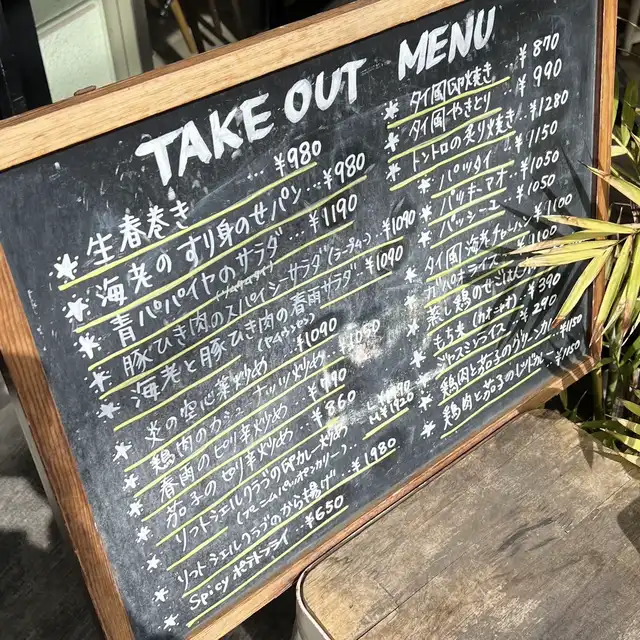 TAKE OUT MENU
生春巻き ... ¥980
海老のすり身のせパン... ¥980
青パパイヤのサラダ ¥1190
豚ひき肉のスパイシーサラダ(ラープムー) ¥1090
海老と豚ひき肉の春雨サラダ ¥1090
(ヤムウンセン)
炎の空心菜炒め ¥1090
鶏肉のカシューナッツ炒め
春雨のピリ辛炒め
茄子のピリ辛炒め ¥860
ソフトシェルクラブの卵カレー炒め
ソフトシェルクラブのから揚げ ... ¥1980
Spicy ポテトフライ ¥650
タイ風卵焼き ... ¥870
タイ風やきとり ¥990
トントロの炙り焼き ¥1280
パッタイ ... ¥1150
パッキーマオ ¥1050
パッシーユ ... ¥1050
タイ風海老チャーハン ¥1100
ガパオライス
蒸し鶏のせごはん
もち米(カオニャオ) ¥390
ジャスミンライス ... ¥290
鶏肉と茄子のグリーンカレー ¥1150
鶏肉と茄子のレッドカレー ¥1150